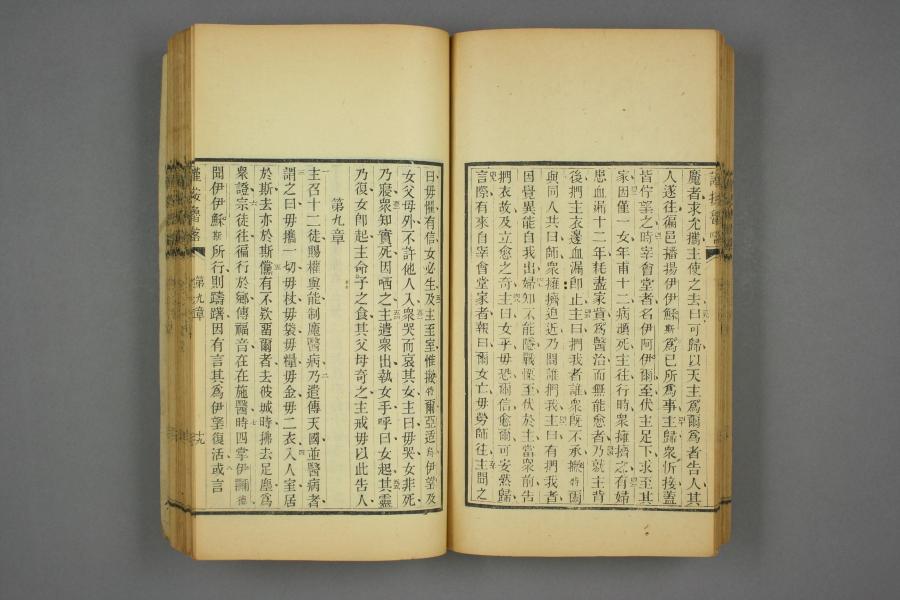 魔者求允攜主使之去曰可歸以天主爲爾爲者告人其
人遂往徧邑播揚伊伊穌斯爲己所爲事主歸衆忻接蓋
皆佇望之時宰會堂者名伊阿伊爾至伏主足下求至其
家因僅一女年甫十二病瀕死主往行時衆擁擠之有婦
患血漏十二年耗盡家貲爲醫治而無能愈者乃就主背
後捫主衣邊血漏即止主曰捫我者誰衆旣不承
與同人共曰師衆擁擠迫近乃問誰捫我主曰有捫我者
因覺異能自我出婦知不能隱戰慄至伏於主當衆前告
捫衣故及立愈之奇主曰女乎毋恐爾信愈爾可安然歸
言際有來自宰會堂家者報曰爾女亡毋勞師往主聞之
曰毋懼有信女必生及主至室惟 伊望及
女父母外不許他人入衆哭而哀其女主曰毋哭女非死
乃寢衆知實死因哂之主遣衆出執女手呼曰女起其靈
乃復女即起主命予之食其父母奇之主戒毋以此告人
第九章
主召十二徒賜權與能制魔醫病乃遣傳天國並醫病者
謂之曰毋攜一切毋杖毋袋毋糧毋金毋二衣入人室居
於斯去亦於斯儻有不欵畱爾者去彼城時拂去足塵爲
衆證宗徒往徧行於鄉傳福音在在施醫時四掌伊
聞伊伊穌斯所行則躊躇因有言其爲伊望復活或言
第九章